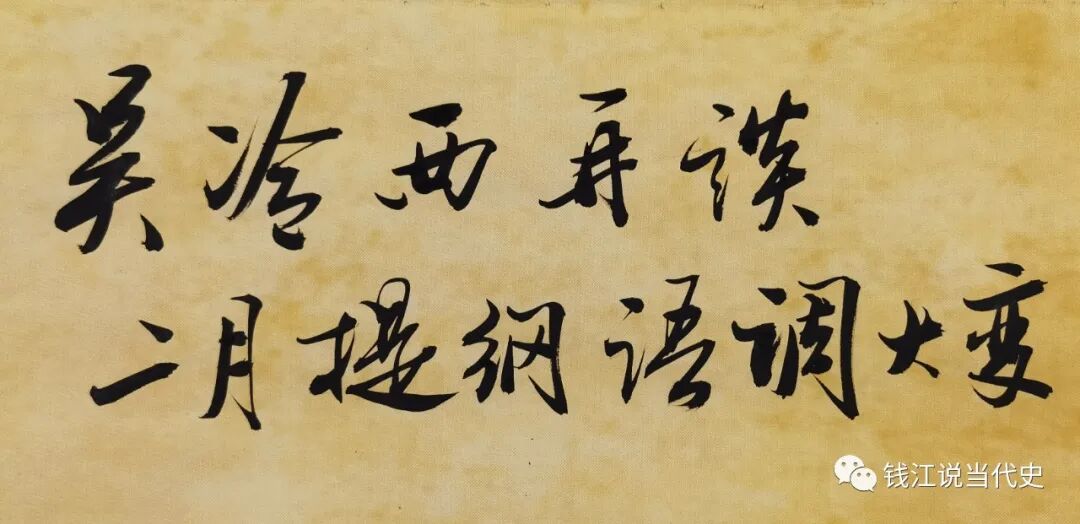 吴冷西再谈
二月提纲语调大变
钱江说当代史